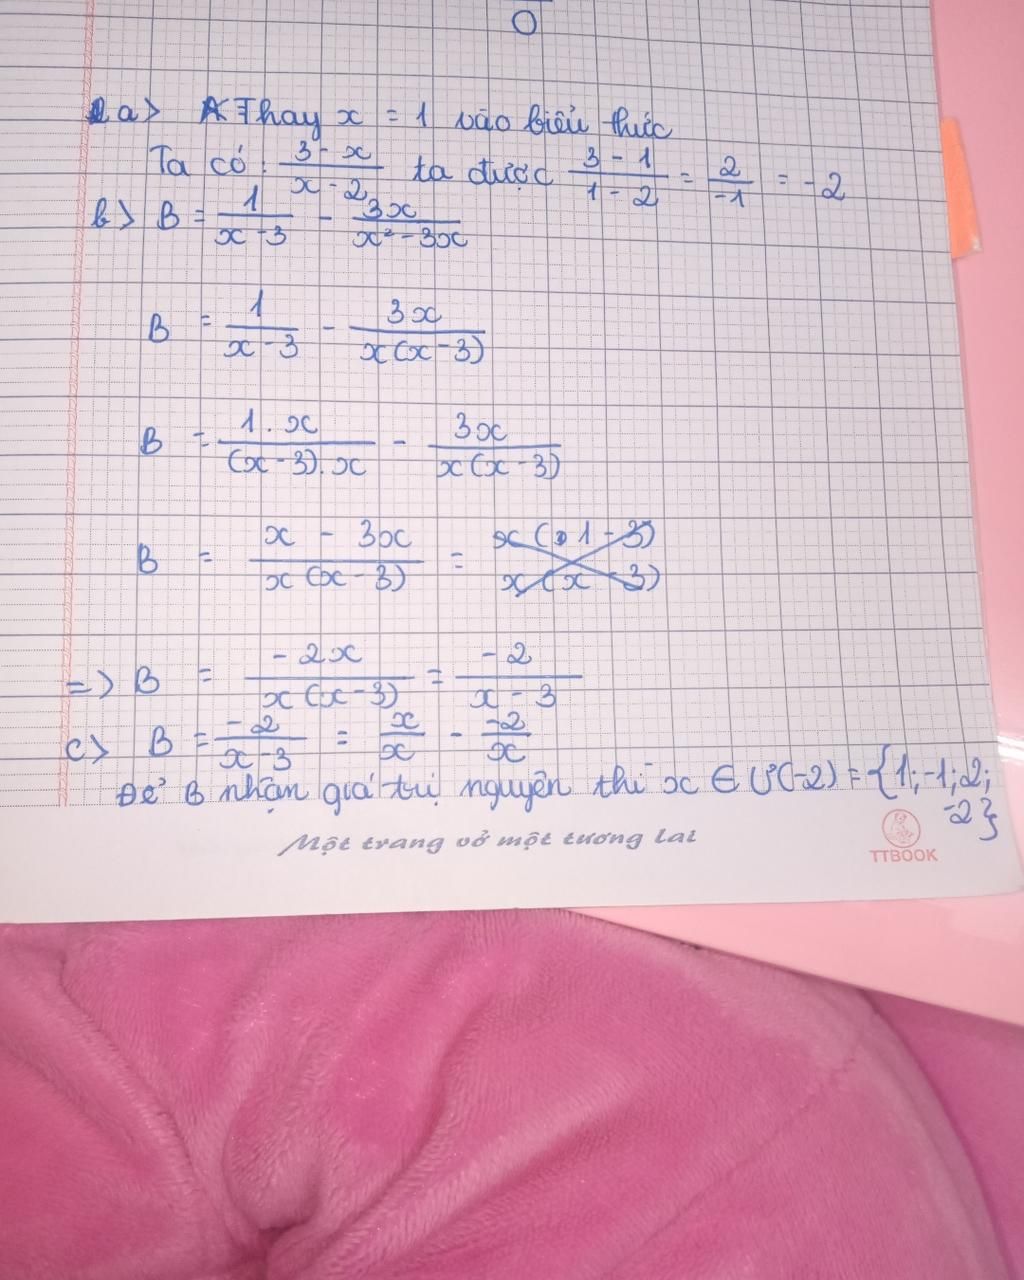 0
2a> A Thay x = 1 vào biểu thức
Ta có : \frac{3 - x}{x - 2} ta được \frac{3 - 1}{1 - 2} = \frac{2}{-1} = -2
b> B = \frac{1}{x - 3} - \frac{3x}{x² - 3x}
B = \frac{1}{x - 3} - \frac{3x}{x(x - 3)}
B = \frac{1 . x}{(x - 3) . x} - \frac{3x}{x(x - 3)}
B = \frac{x - 3x}{x(x - 3)} = \frac{x(1 - 3)}{x(x - 3)}
=> B = \frac{-2x}{x(x - 3)} = \frac{-2}{x - 3}
c> B = \frac{-2}{x - 3} = \frac{x}{x} - \frac{-2}{x}
Để B nhận giá trị nguyên thì x ∈ Ư(-2) = {1; -1; 2;
-2}
Một trang vở một tương lai
TTBOOK